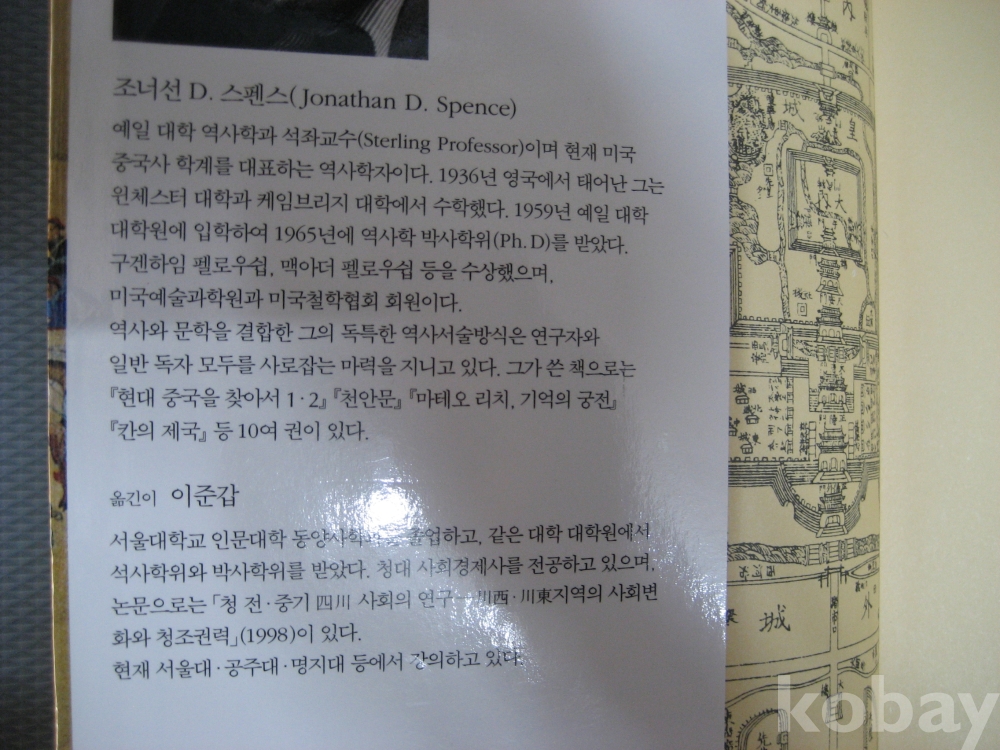 조너선 D. 스펜스(Jonathan D. Spence)
예일 대학 역사학과 석좌교수(Sterling Professor)이며 현재 미국
중국사 학계를 대표하는 역사학자이다. 1936년 영국에서 태어난 그는
윈체스터 대학과 케임브리지 대학에서 수학했다. 1959년 예일 대학
대학원에 입학하여 1965년에 역사학 박사학위(Ph.D)를 받았다.
구겐하임 펠로우쉽, 맥아더 펠로우쉽 등을 수상했으며,
미국예술과학원과 미국철학협회 회원이다.
역사와 문학을 결합한 그의 독특한 역사서술방식은 연구자와
일반 독자 모두를 사로잡는 마력을 지니고 있다. 그가 쓴 책으로는
『현대 중국을 찾아서 1·2』『천안문』『마테오 리치, 기억의 궁전』
『칸의 제국』 등 10여 권이 있다.
옮긴이 이준갑
서울대학교 인문대학 동양사학 졸업하고, 같은 대학 대학원에서
석사학위와 박사학위를 받았다. 청대 사회경제사를 전공하고 있으며,
논문으로는 「청 전·중기 四川 사회의 연구—川西·川東지역의 사회변
화와 청조권력」(1998)이 있다.
현재 서울대·공주대·명지대 등에서 강의하고 있다.
內
城
皇
大
內
外
城
kobay